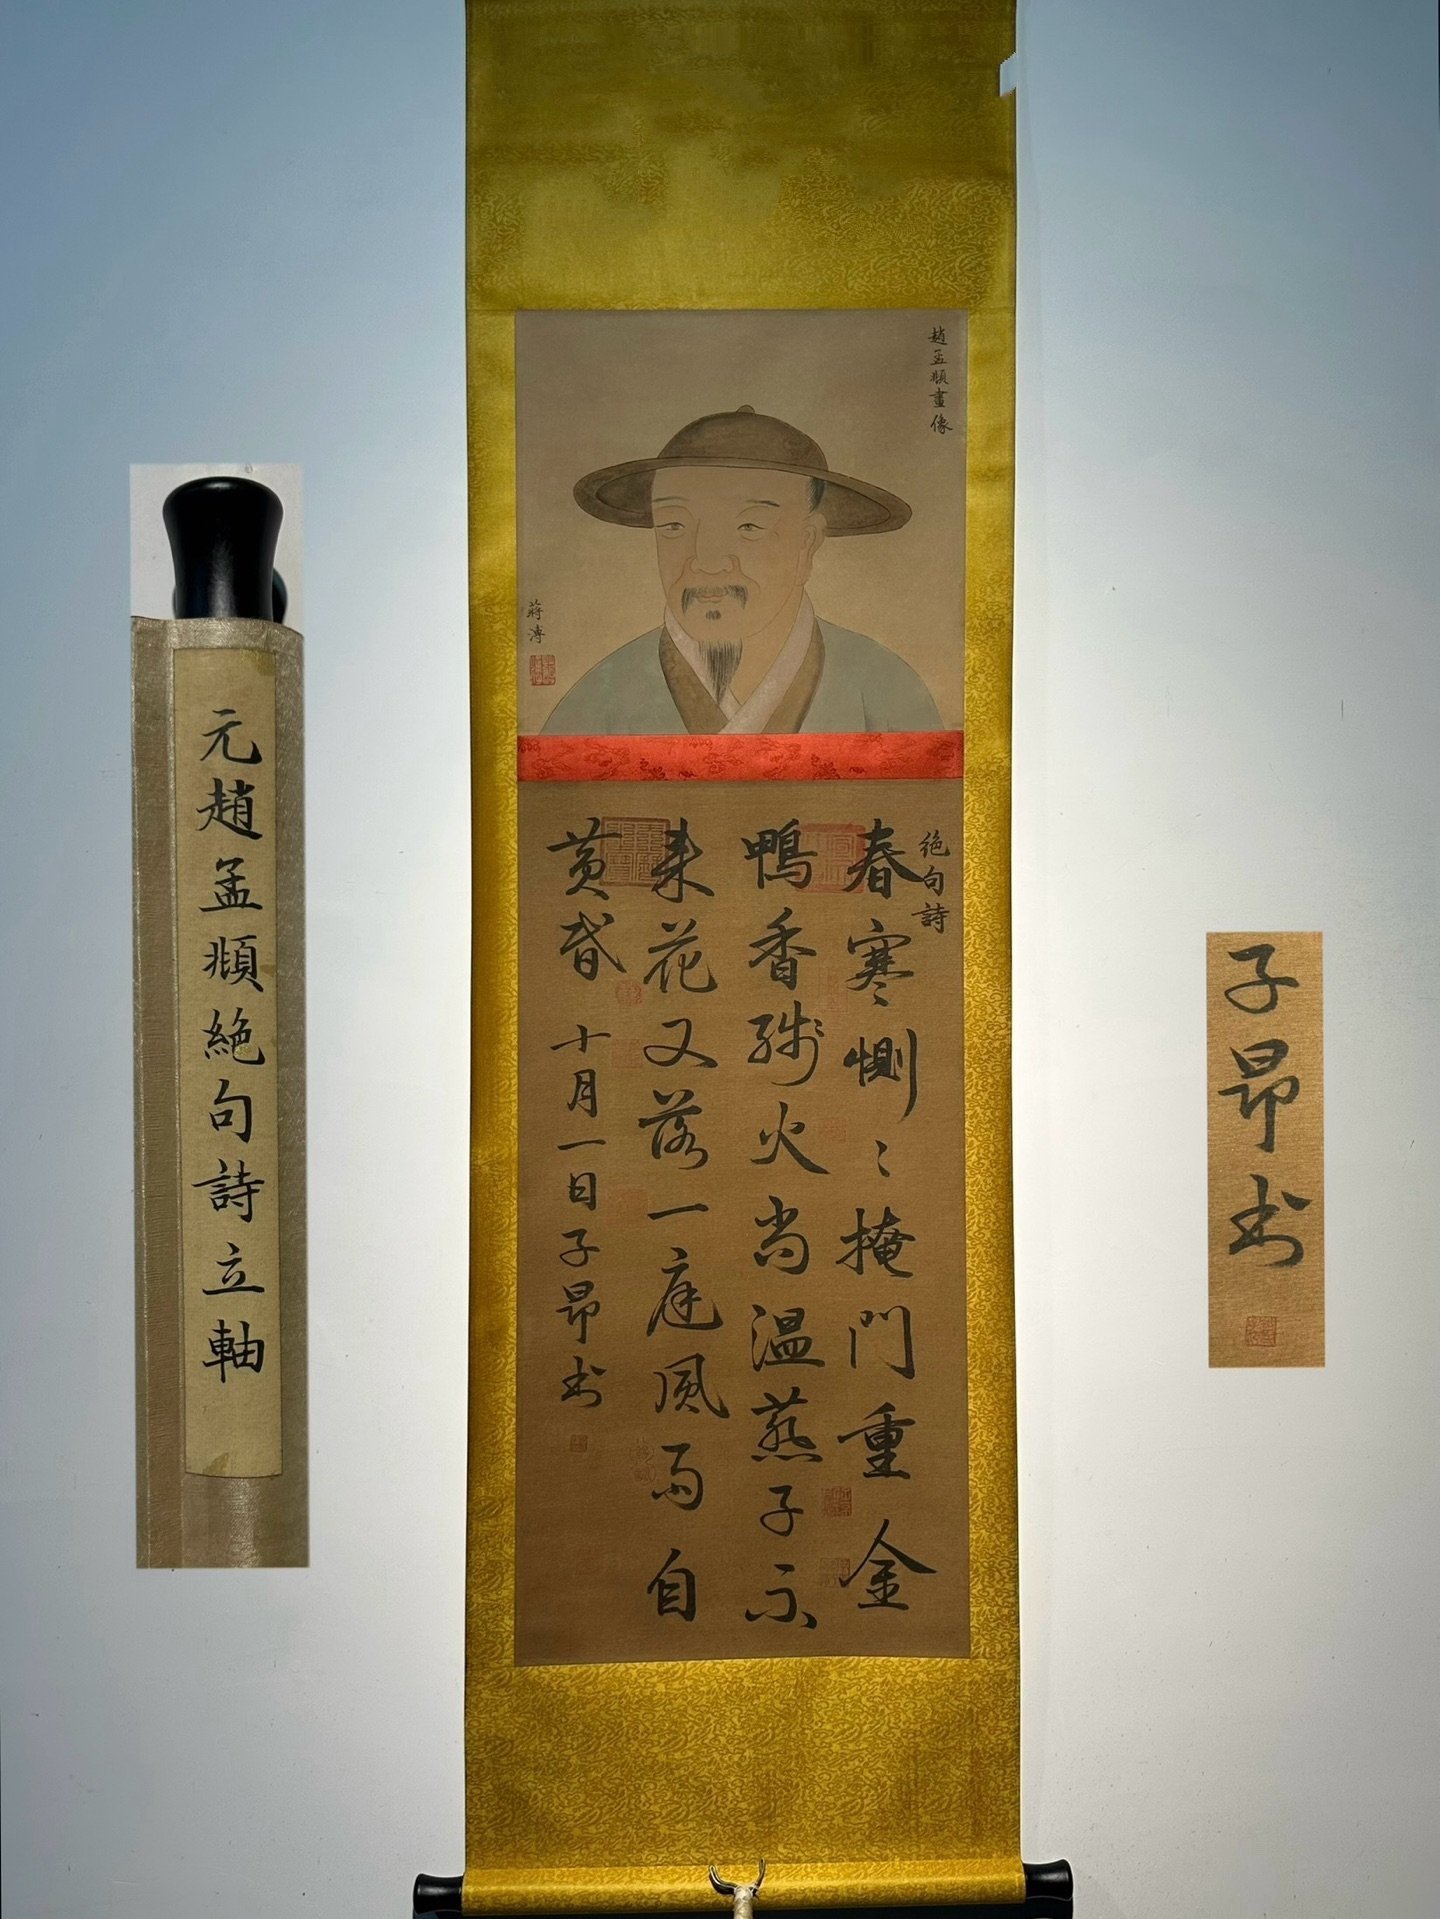 趙孟頫畫像
蔣溥
絶句詩
春寒惻〻掩門重金
鴨香殘火尚温燕子不
来花又落一庭風雨自
黄昏 十月一日子昂书
元趙孟頫絶句詩立軸
子昂书